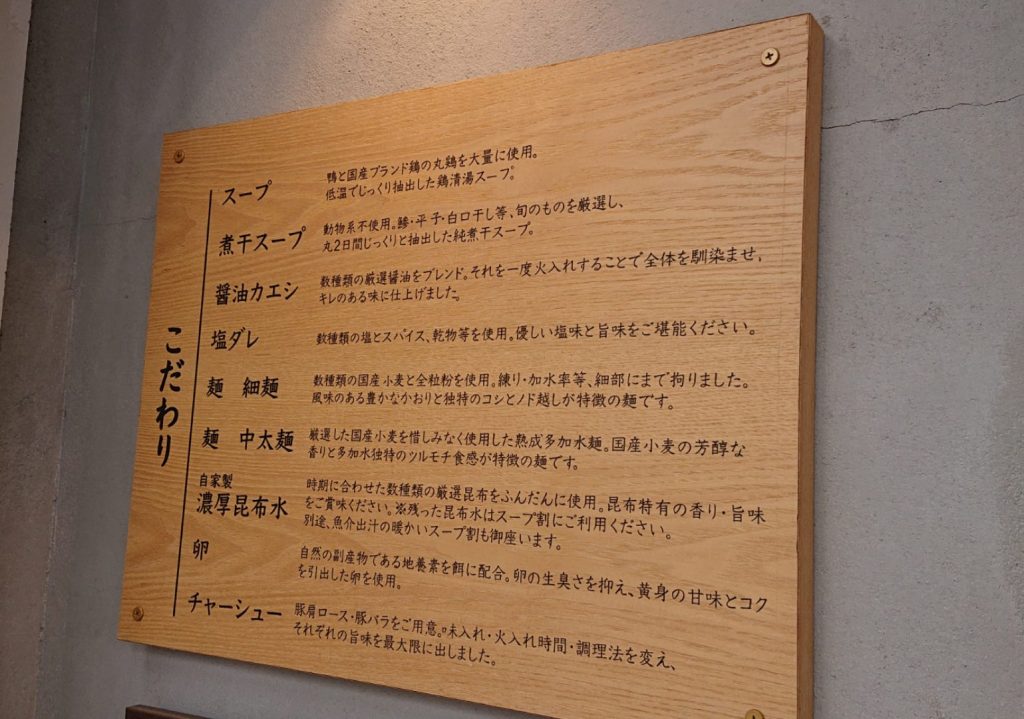 こだわり
スープ
鴨と国産ブランド鶏の丸鶏を大量に使用。
低温でじっくり抽出した鶏清湯スープ。
煮干スープ
動物系不使用。鯵・平子・白口干し等、旬のものを厳選し、
丸2日間じっくりと抽出した純煮干スープ。
醤油カエシ
数種類の厳選醤油をブレンド。それを一度火入れすることで全体を馴染ませ、
キレのある味に仕上げました。
塩ダレ
数種類の塩とスパイス、乾物等を使用。優しい塩味と旨味をご堪能ください。
麺 細麺
数種類の国産小麦と全粒粉を使用。練り・加水率等、細部にまで拘りました。
風味のある豊かなかおりと独特のコシとノド越しが特徴の麺です。
麺 中太麺
厳選した国産小麦を惜しみなく使用した熟成多加水麺。国産小麦の芳醇な
香りと多加水独特のツルモチ食感が特徴の麺です。
自家製
濃厚昆布水
時期に合わせた数種類の厳選昆布をふんだんに使用。昆布特有の香り・旨味
をご賞味ください。※残った昆布水はスープ割にご利用ください。
別途、魚介出汁の暖かいスープ割も御座います。
卵
自然の副産物である地養素を餌に配合。卵の生臭さを抑え、黄身の甘味とコク
を引出した卵を使用。
チャーシュー
豚肩ロース・豚バラをご用意。味入れ・火入れ時間・調理法を変え、
それぞれの旨味を最大限に出しました。